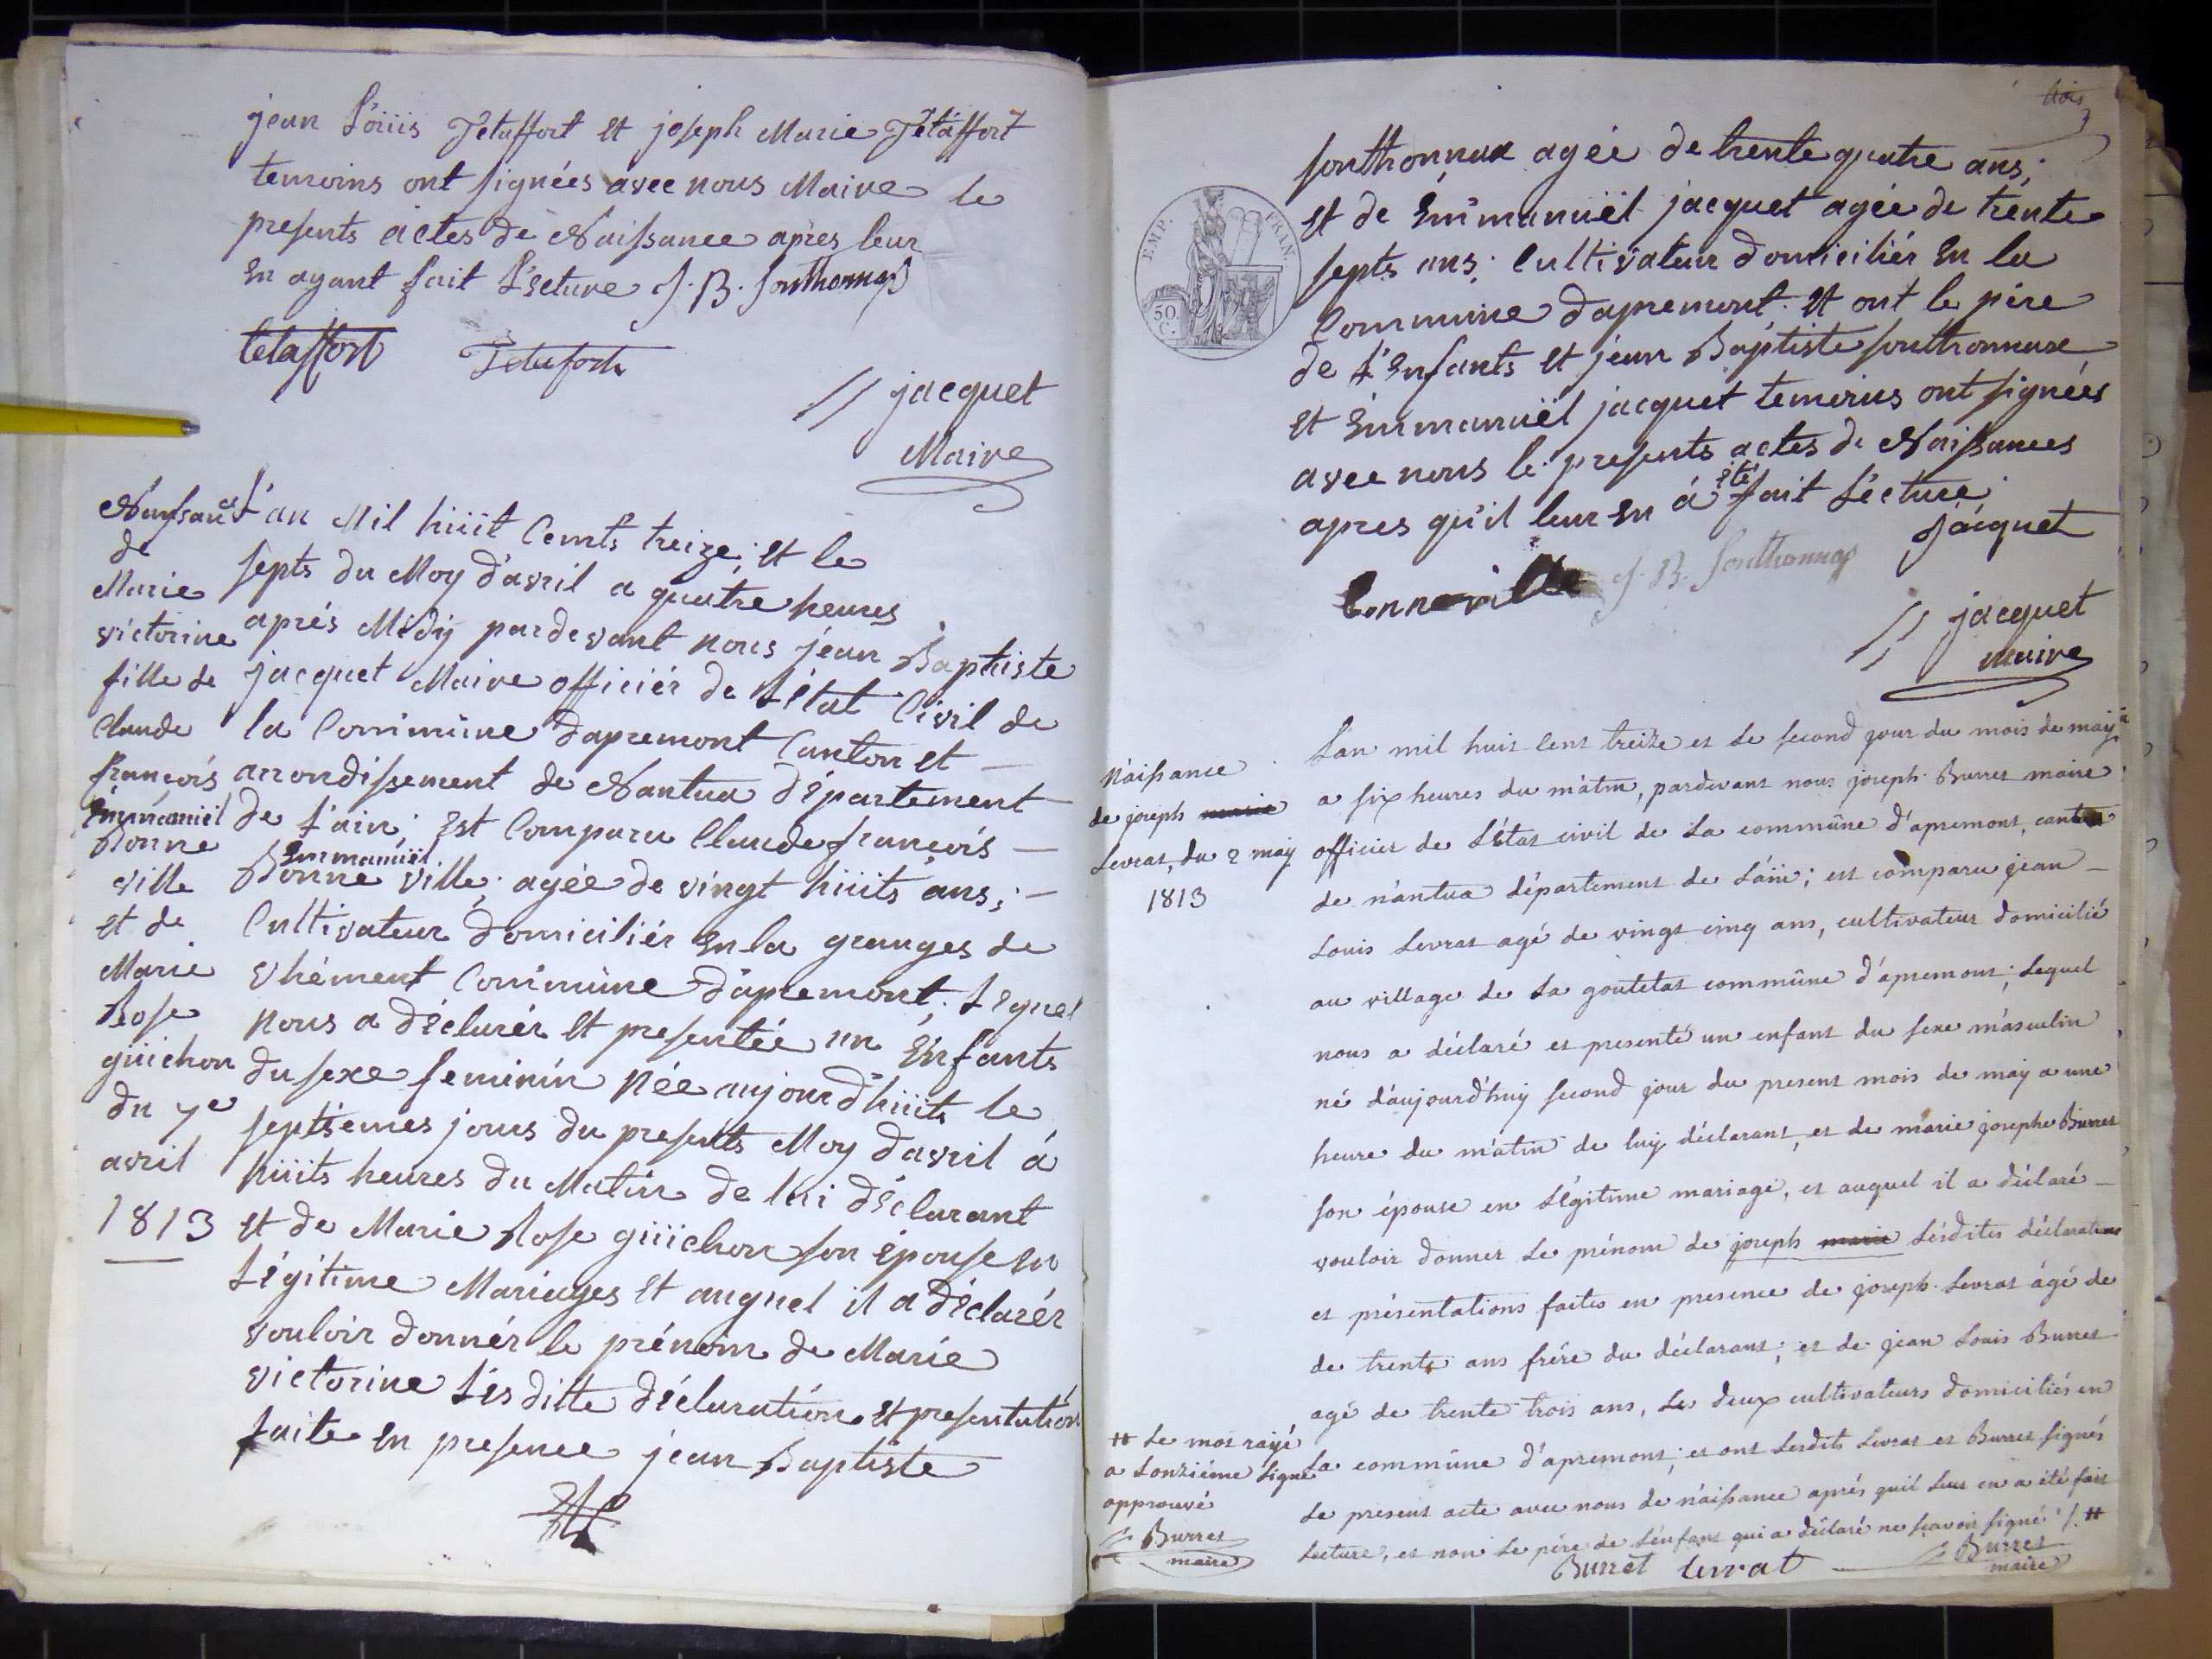 jean Loüis Tétaffort et joseph Marie Tétaffort
temoins ont signées avec nous Maire le
presents actes de Naissance apres leur
en ayant fait Lecture J. B. Sonthonnax
tetaffort Tetafort
jacquet
Maire
Naissance
de
Marie
victorine
fille de
Claude
françois
Emmanuiël
Bonne
ville
et de
Marie
Rose
guïchon
du 7e
avril
1813
L'an Mil huüt Cents treize; et le
septs du Moy d'avril a quatre heures
aprés Midÿ pardevant nous jean Baptiste
jacquet Maire officiér de L'état Civil de
la Commüne dapremont Canton et
arrondissement de Nantua Département
de L'ain; est Comparu Claude françois
Emmanuiël
Bonne ville; agée de vingt hüits ans;
Cultivateur domiciliér en la granges de
vhément Commüne dapremont; Lequel
nous a déclarér et presentée un Enfants
du sexe feminin née aujourdhüits le
septiemes jours du presents Moy davril á
hüits heures du Matin de lui déclarant
et de Marie Rose guïchon son épouse en
Légitime Mariages et auquel il a déclarér
vouloir donnér le prénom de Marie
victorine Lesditte déclaration et presentation
faite en presence jean Baptiste
trois
sonthonnax agée de trente quatre ans;
et de Emmanuiël jacquet agée de trente
septs ans; Cultivateur domiciliér en la
Commune dapremont; et ont le pére
de L'enfants et jean Baptiste sonthonnaxe
et Emmanuiël jacquet temoins ont signées
avec nous le presents actes de Naissances
été
apres qu'il leur en á fait Lecture
EMP. FRAN.
50.
C.
jacquet
bonneville J. B. Sonthonnax
jacquet
maire
Naissance
de joseph marie
Levrat, du 2 may
1813
Lan mil huit cent treize et le second jour du mois de may
a six heures du mátin, pardevant nous joseph Burret maire
officier de L'état civil de La commûne d'apremont, canton
de nántua département de Láin; est comparu jean
Louis Levrat agé de vingt cinq ans, cultivateur domicilié
au village de La goutetat commûne d'apremont; Lequel
nous a déclaré et presenté un enfant du sexe másculin
né d'aujourd'huy second jour du present mois de may a une
heure du mátin de luy déclarant, et de marie josephe Burret
son épouse en Légitime mariage, et auquel il a déclaré
vouloir donner Le prénom de joseph marie Lesdites déclarations
et présentations faites en presence de joseph Levrat ágé de
de trente ans frére du déclarant; et de jean Louis Burret
agé de trente trois ans, Les deux cultivateurs domiciliés en
La commûne d'apremont; et ont Lesdits Levrat et Burret signés
Le present acte avec nous de naissance aprés quil Leur en a été fait
Lecture, et non Le pére de Lénfant qui a déclaré ne sçavoir signé ./. #
# Le mot rayé
a Lonziéme Ligne
approuvé
Burret
maire
Burret Levrat
Burret
maire